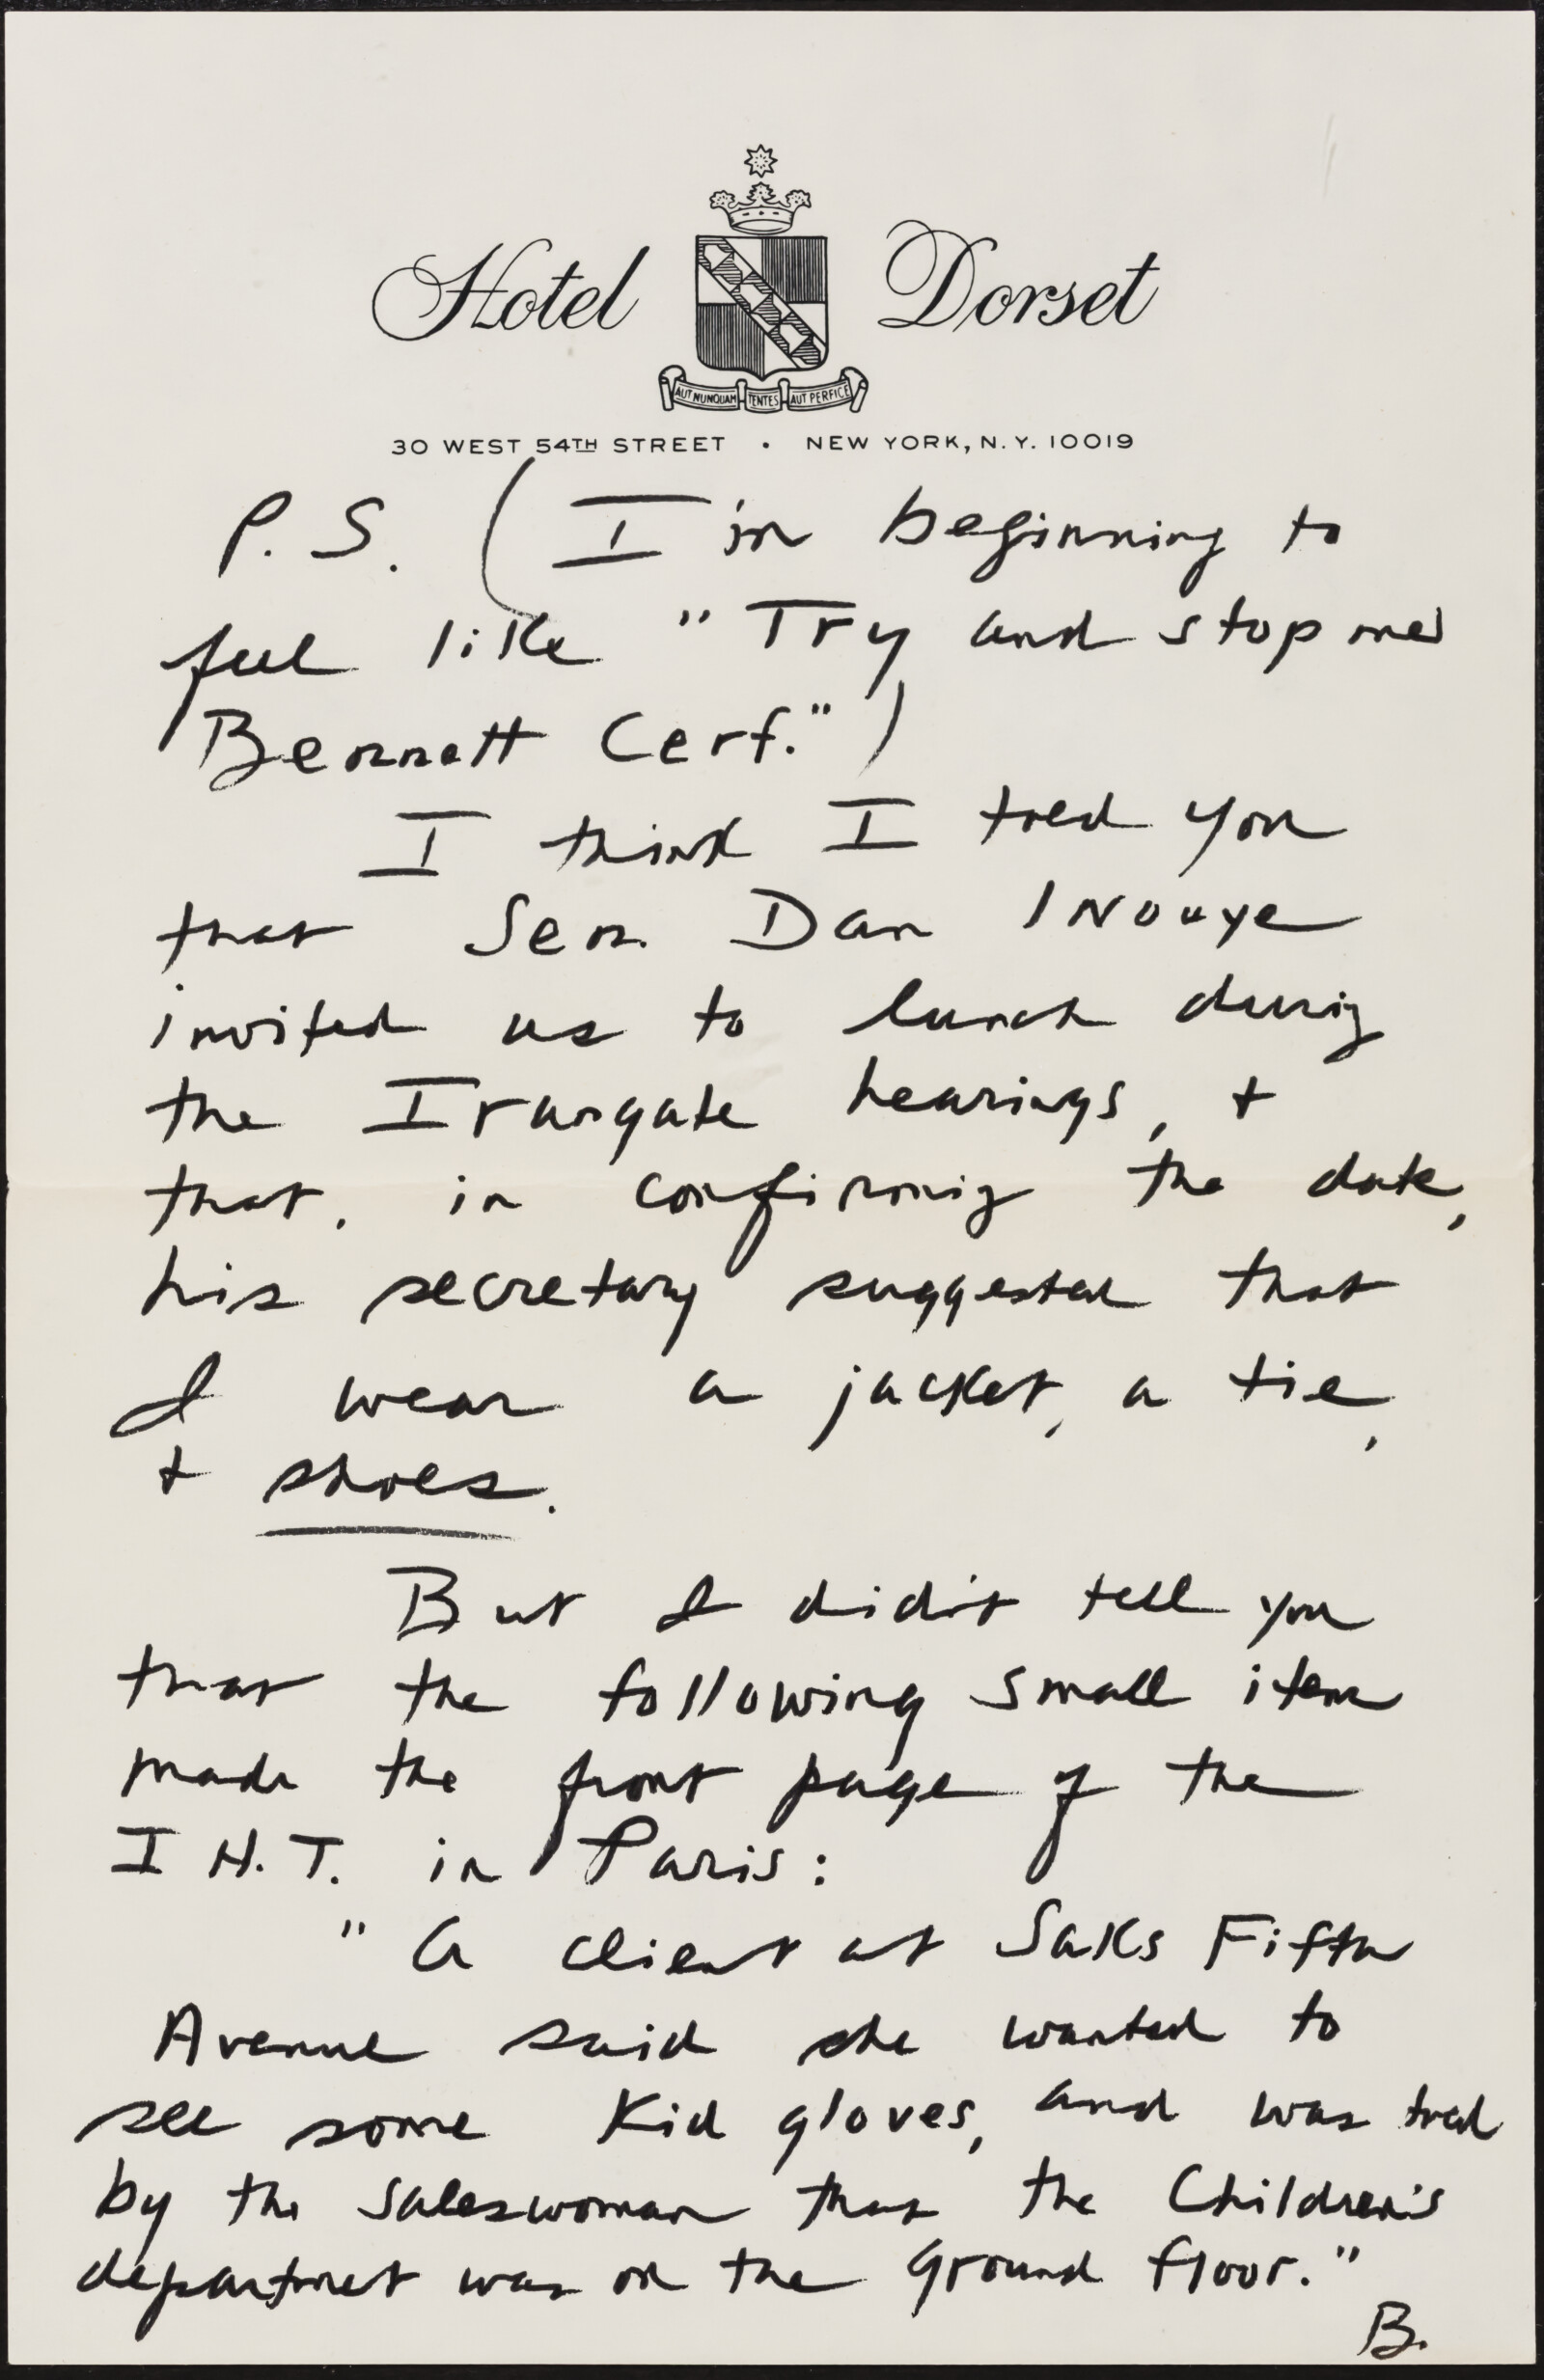 Hotel Dorset
AUT NUNQUAM TENTES AUT PERFICE
30 WEST 54TH STREET • NEW YORK, N.Y. 10019
P.S. (I'm beginning to
feel like "Try and stop me
Bennett Cerf.")
I think I told you
that Sen. Dan Inouye
invited us to lunch during
the Irangate hearings, +
that, in confirming the date,
his secretary suggested that
I wear a jacket, a tie,
+ shoes.
But I didn't tell you
that the following small item
made the front page of the
I H.T. in Paris:
"A client at Saks Fifth
Avenue said she wanted to
see some kid gloves, and was told
by the saleswoman that the Children's
department was on the ground floor."
B.